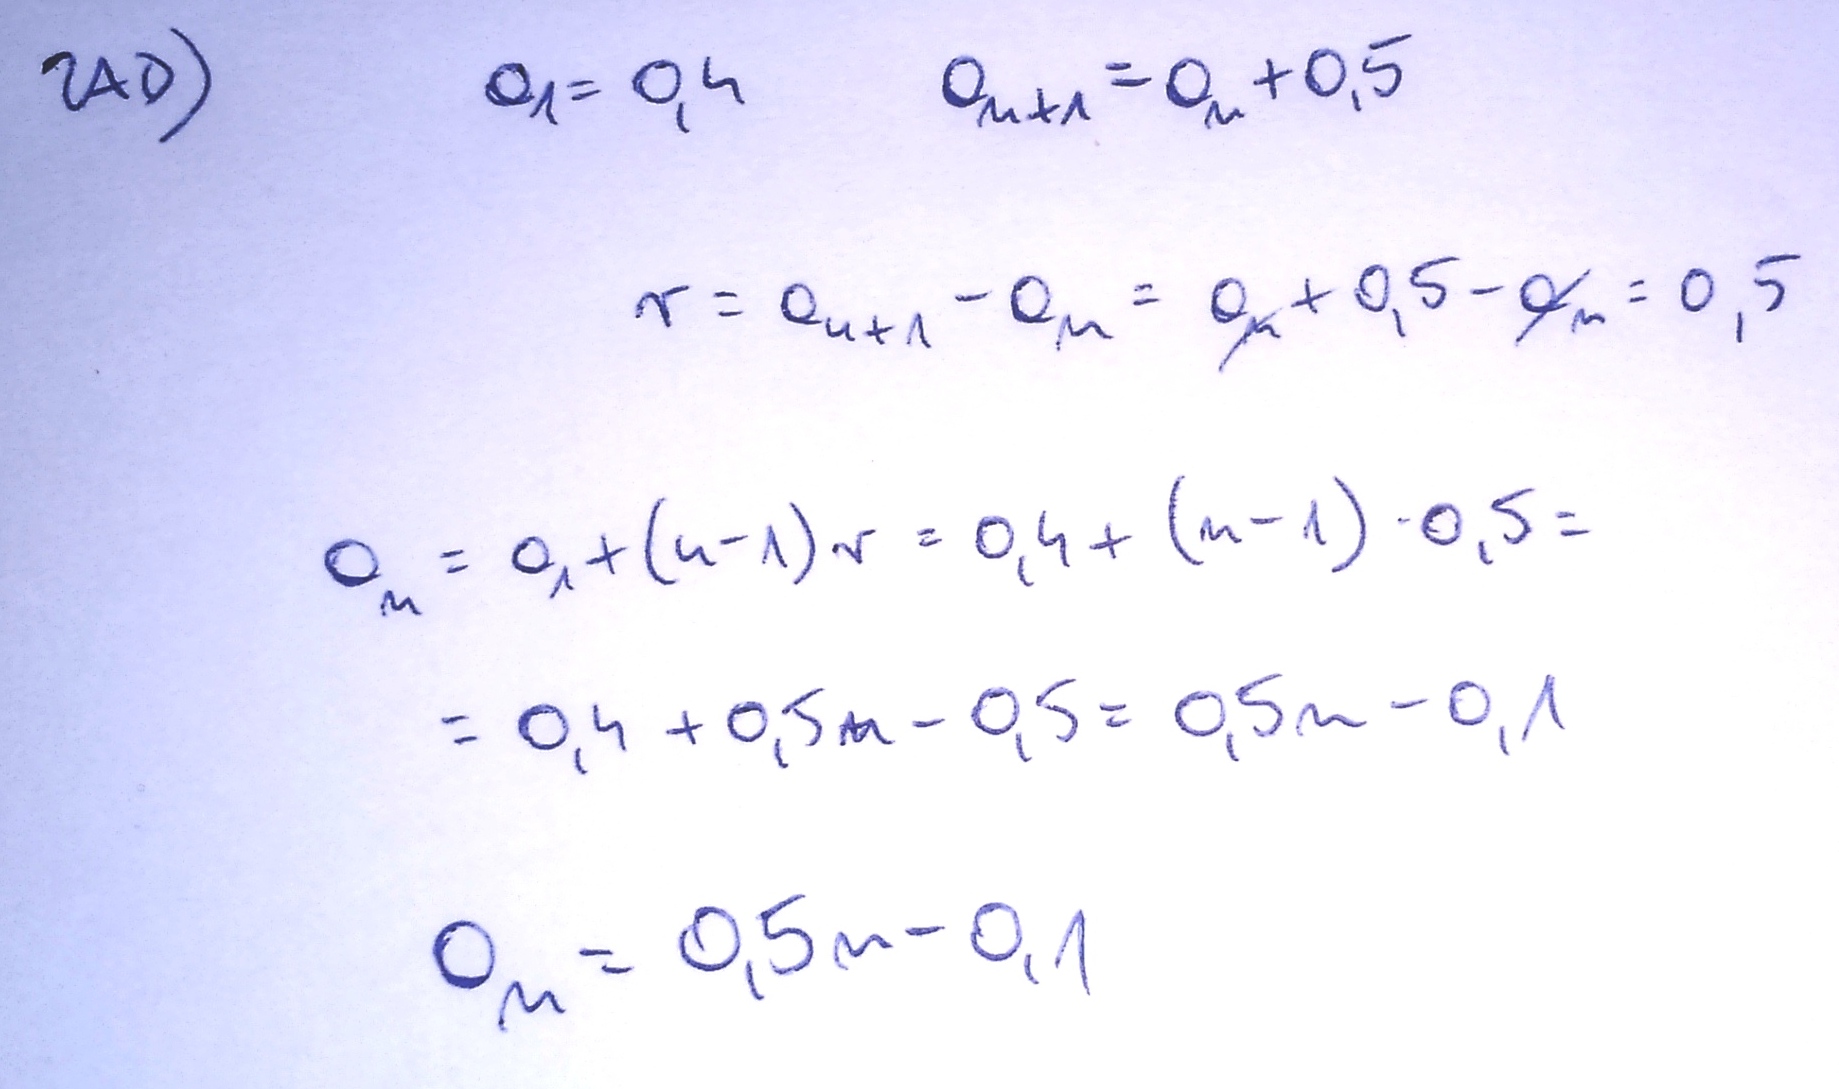 ZAD) a₁ = 0,4 aₙ₊₁ = aₙ + 0,5
r = aₙ₊₁ - aₙ = aₙ + 0,5 - aₙ = 0,5
aₙ = a₁ + (n-1)r = 0,4 + (n-1) · 0,5 =
= 0,4 + 0,5n - 0,5 = 0,5n - 0,1
aₙ = 0,5n - 0,1